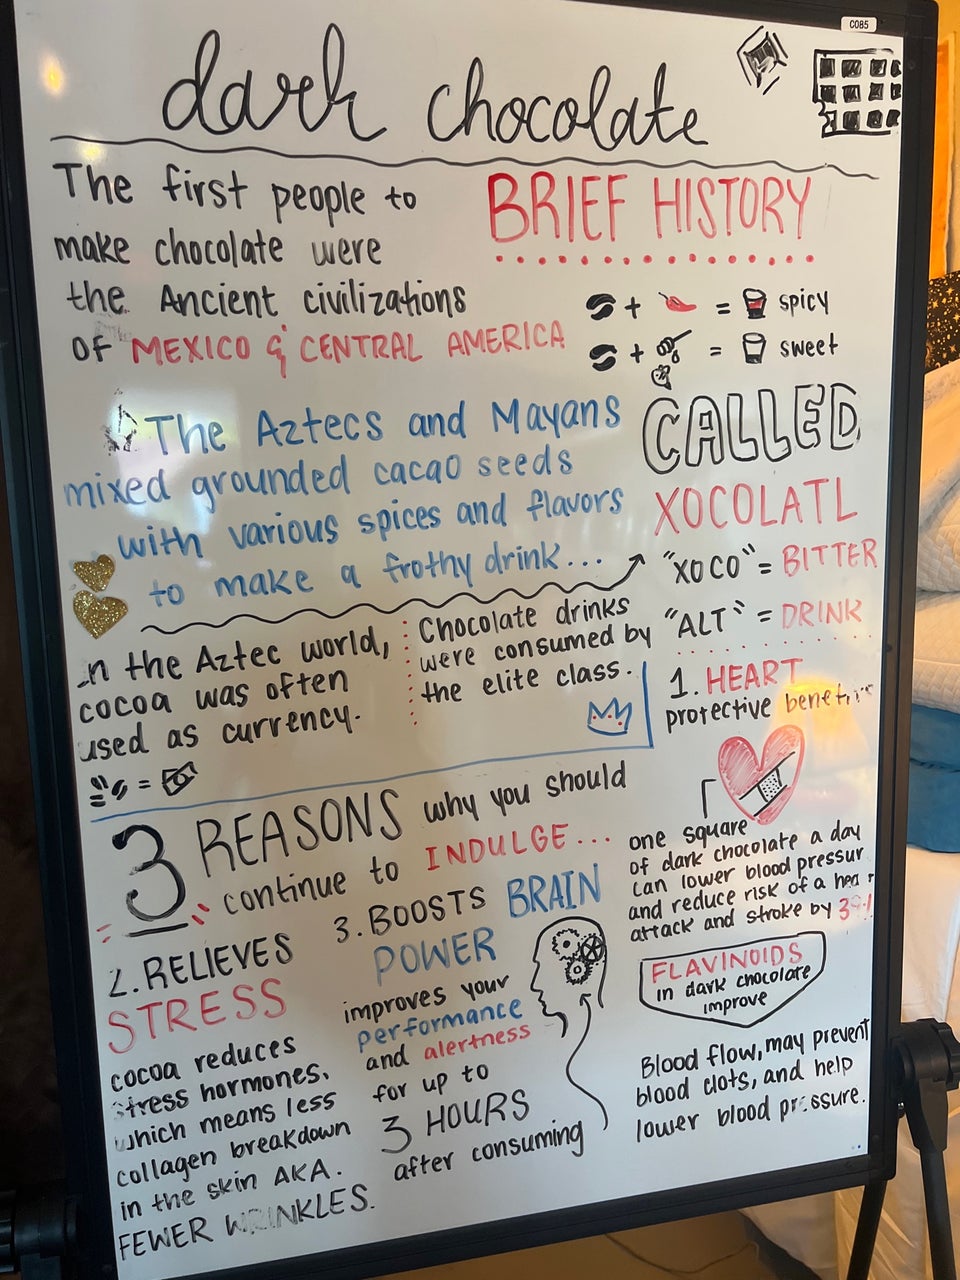 C085
dark chocolate
The first people to
make chocolate were
the Ancient civilizations
of MEXICO & CENTRAL AMERICA
BRIEF HISTORY
+ = spicy
+ = sweet
The Aztecs and Mayans
mixed grounded cacao seeds
with various spices and flavors
to make a frothy drink...
CALLED
XOCOLATL
"XOCO" = BITTER
"ALT" = DRINK
In the Aztec world,
cocoa was often
used as currency.
=
Chocolate drinks
were consumed by
the elite class.
3 REASONS why you should
continue to INDULGE...
1. HEART
protective benefits
one square
of dark chocolate a day
can lower blood pressur
and reduce risk of a heart
attack and stroke by
FLAVINOIDS
in dark chocolate
improve
Blood flow, may prevent
blood clots, and help
lower blood pressure.
2. RELIEVES
STRESS
cocoa reduces
stress hormones,
which means less
collagen breakdown
in the skin AKA.
FEWER WRINKLES.
3. BOOSTS BRAIN
POWER
improves your
performance
and alertness
for up to
3 HOURS
after consuming